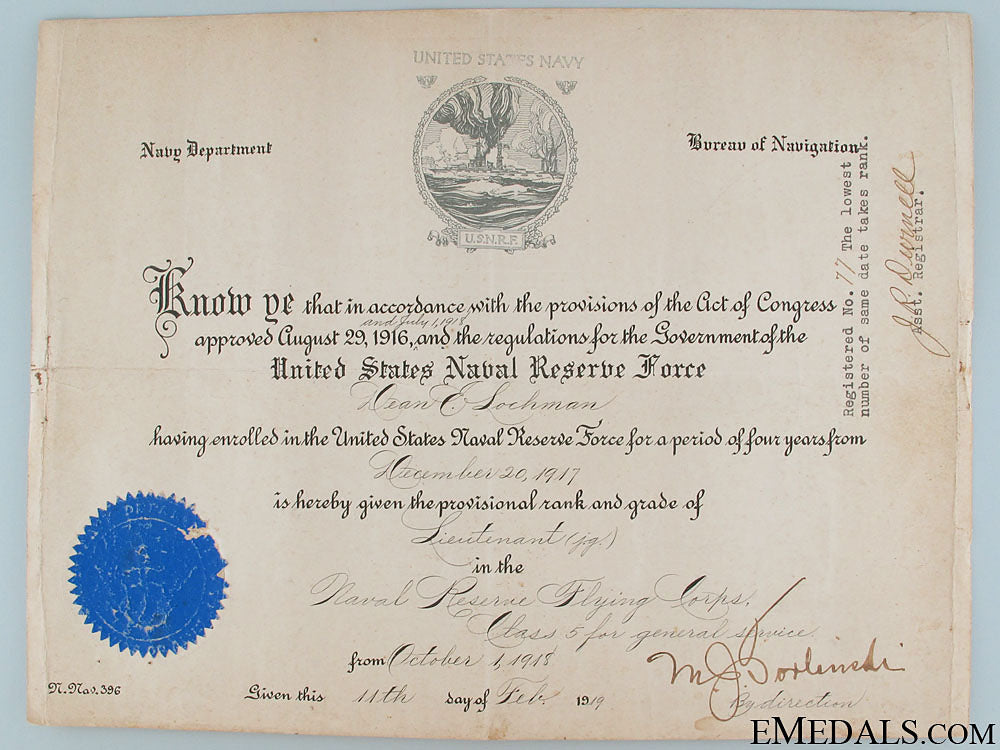 UNITED STATES NAVY
Navy Department
Bureau of Navigation
U.S.N.R.F.
Know ye that in accordance with the provisions of the Act of Congress
and July 1, 1918
approved August 29, 1916, and the regulations for the Government of the
United States Naval Reserve Force
Dean E. Lochman
having enrolled in the United States Naval Reserve Force for a period of four years from
December 20, 1917
is hereby given the provisional rank and grade of
Lieutenant (j.g.)
in the
Naval Reserve Flying Corps.
Class 5 for general service.
from October 1, 1918
N. Nav. 396
Given this 11th day of Feb. 1919
By direction
Registered No. 77 The lowest
number of same date takes rank.
Asst. Registrar.
EMEDALS.COM